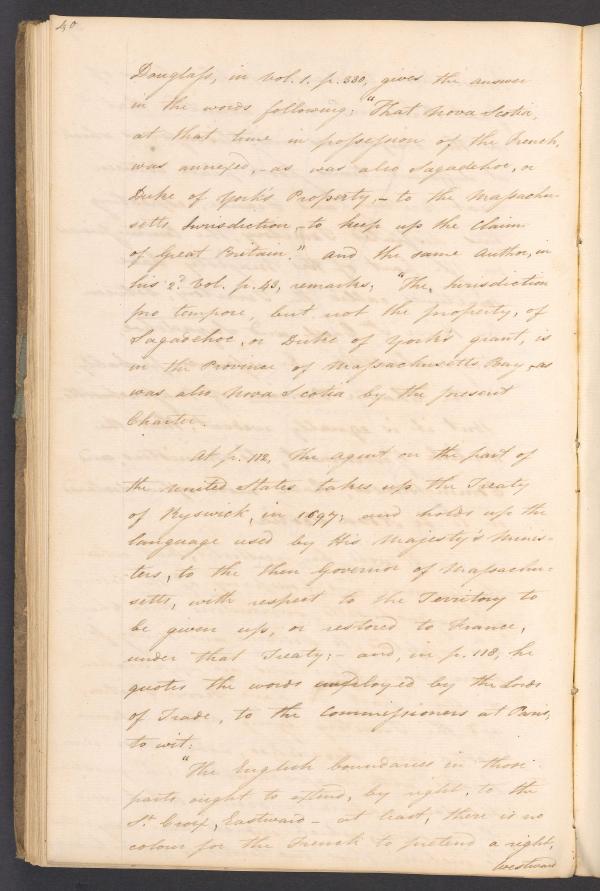 40
Douglass, in Vol. 1. p. 330, gives the answer
in the words following; "That Nova Scotia,
at that time in possession of the French,
was annexed, - as was also Sagadehoc, or
Duke of York's Property, - to the Massachu-
setts Jurisdiction, to keep up the Claim
of Great Britain." And the same Author, in
his 2d. Vol. p. 43, remarks; "The Jurisdiction
pro tempore, but not the property, of
Sagadehoc, or Duke of York's grant, is
in the Province of Massachusetts Bay, as
was also Nova Scotia by the present
Charter.
At p. 112, The Agent on the part of
the United States takes up the Treaty
of Ryswick, in 1697; and holds up the
language used by His Majesty's Minis-
ters, to the then Governor of Massachu-
setts, with respect to the Territory to
be given up, or restored to France,
under that Treaty; - and, in p. 118, he
quotes the words employed by the Lords
of Trade, to the Commissioners at Paris,
to wit:
"The English boundaries in those
parts ought to extend, by right, to the
St. Croix, Eastward - at least, there is no
colour for the French to pretend a right,
Westward